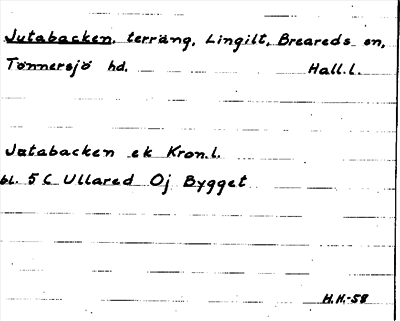 Jutabacken, terräng, Lingilt, Breareds sn,
Tönnersjö hd. Hall.l.
Jutabacken ek Kron.l.
bl. 5 C Ullared Oj Bygget
H.N.-58